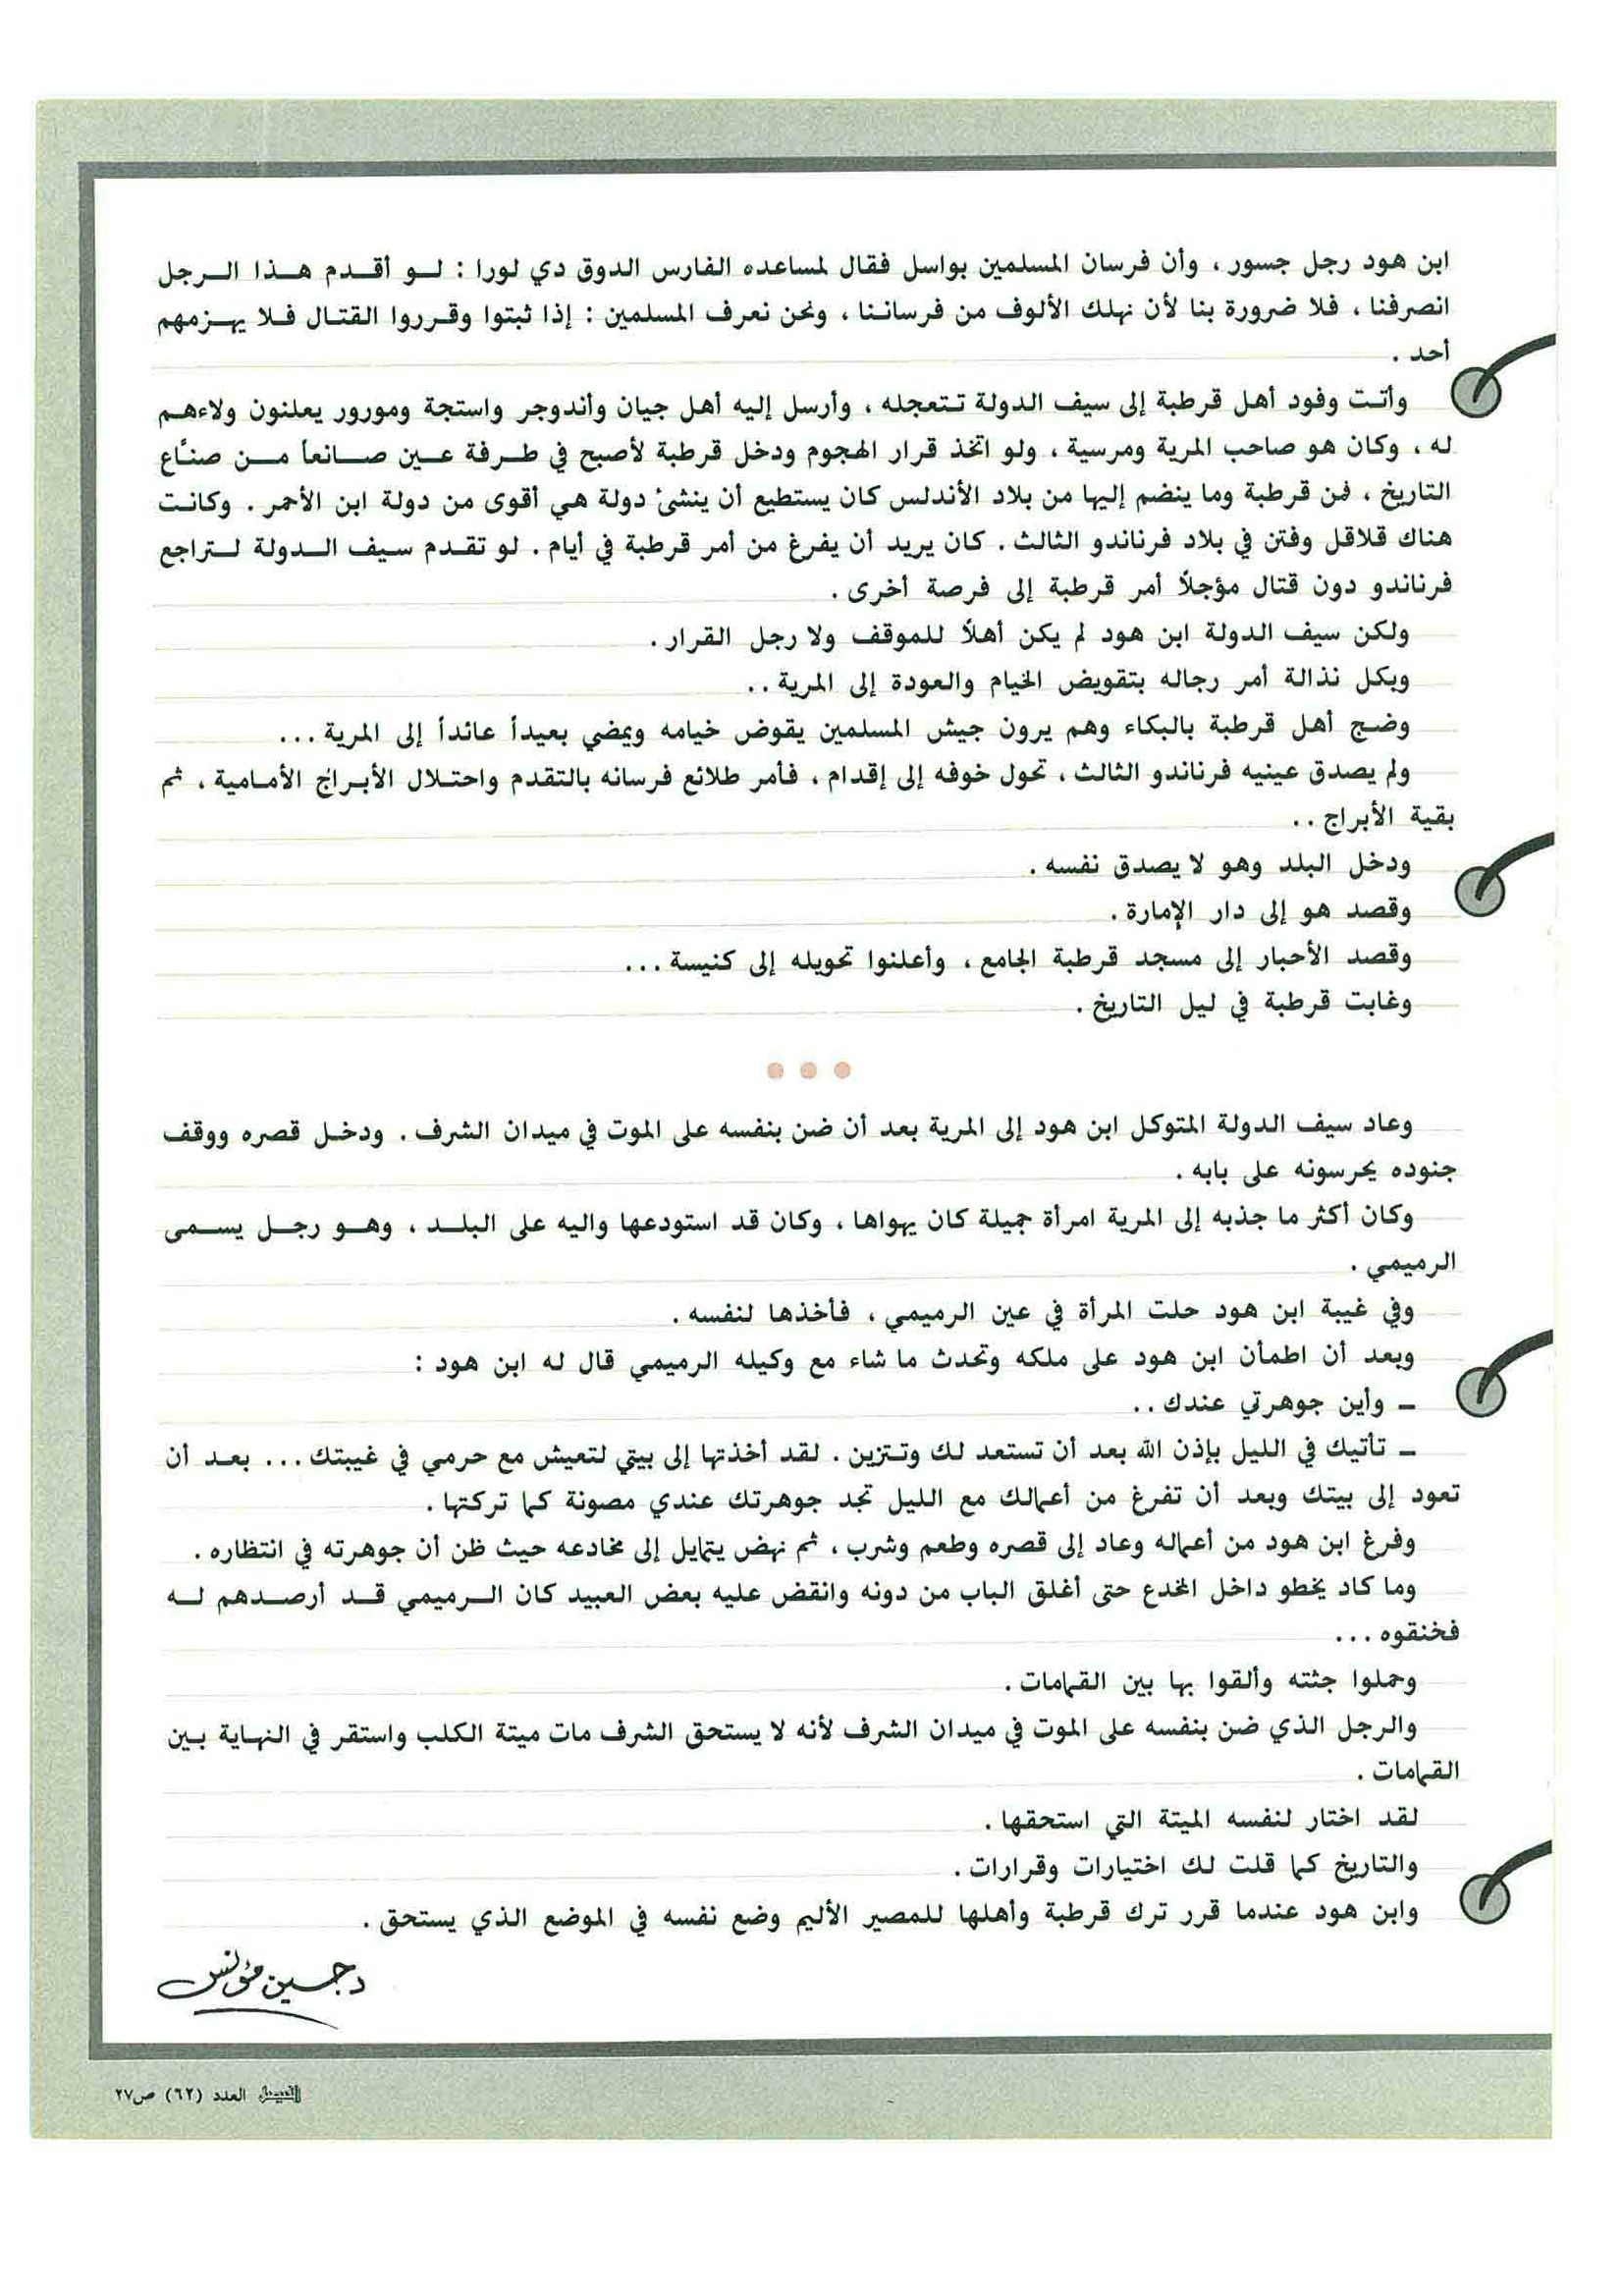 ابن هود رجل جسور ، وأن فرسان المسلمين بواسل فقال لمساعده الفارس الدوق دي لورا : لو أقدم هذا الرجل
انصرفنا ، فلا ضرورة بنا لأن نهلك الألوف من فرساننا ، ونحن نعرف المسلمين : إذا ثبتوا وقرروا القتال فلا يهزمهم
أحد .
وأتت وفود أهل قرطبة إلى سيف الدولة تتعجله ، وأرسل إليه أهل جيان وأندوجر واستجة ومورور يعلنون ولاءهم
له ، وكان هو صاحب المرية ومرسية ، ولو اتخذ قرار الهجوم ودخل قرطبة لأصبح في طرفة عين صانعاً من صنّاع
التاريخ ، فمن قرطبة وما ينضم إليها من بلاد الأندلس كان يستطيع أن ينشئ دولة هي أقوى من دولة ابن الأحمر . وكانت
هناك قلاقل وفتن في بلاد فرناندو الثالث . كان يريد أن يفرغ من أمر قرطبة في أيام . لو تقدم سيف الدولة لتراجع
فرناندو دون قتال مؤجلاً أمر قرطبة إلى فرصة أخرى .
ولكن سيف الدولة ابن هود لم يكن أهلاً للموقف ولا رجل القرار .
وبكل نذالة أمر رجاله بتقويض الخيام والعودة إلى المرية ..
وضج أهل قرطبة بالبكاء وهم يرون جيش المسلمين يقوض خيامه ويمضي بعيداً عائداً إلى المرية ...
ولم يصدق عينيه فرناندو الثالث ، تحول خوفه إلى إقدام ، فأمر طلائع فرسانه بالتقدم واحتلال الأبراج الأمامية ، ثم
بقية الأبراج ..
ودخل البلد وهو لا يصدق نفسه .
وقصد هو إلى دار الإمارة .
وقصد الأحبار إلى مسجد قرطبة الجامع ، وأعلنوا تحويله إلى كنيسة ...
وغابت قرطبة في ليل التاريخ .
وعاد سيف الدولة المتوكل ابن هود إلى المرية بعد أن ضن بنفسه على الموت في ميدان الشرف . ودخل قصره ووقف
جنوده يحرسونه على بابه .
وكان أكثر ما جذبه إلى المرية امرأة جميلة كان يهواها ، وكان قد استودعها واليه على البلد ، وهو رجل يسمى
الرميمي .
وفي غيبة ابن هود حلت المرأة في عين الرميمي ، فأخذها لنفسه .
وبعد أن اطمأن ابن هود على ملكه وتحدث ما شاء مع وكيله الرميمي قال له ابن هود :
ـ وأين جوهرتي عندك ..
ـ تأتيك في الليل بإذن الله بعد أن تستعد لك وتتزين . لقد أخذتها إلى بيتي لتعيش مع حرمي في غيبتك ... بعد أن
تعود إلى بيتك وبعد أن تفرغ من أعمالك مع الليل تجد جوهرتك عندي مصونة كما تركتها .
وفرغ ابن هود من أعماله وعاد إلى قصره وطعم وشرب ، ثم نهض يتمايل إلى مخادعه حيث ظن أن جوهرته في انتظاره .
وما كاد يخطو داخل المخدع حتى أغلق الباب من دونه وانقض عليه بعض العبيد كان الرميمي قد أرصدهم له
فخنقوه ...
وحملوا جثته وألقوا بها بين القمامات .
والرجل الذي ضن بنفسه على الموت في ميدان الشرف لأنه لا يستحق الشرف مات ميتة الكلب واستقر في النهاية بين
القمامات .
لقد اختار لنفسه الميتة التي استحقها .
والتاريخ كما قلت لك اختيارات وقرارات .
وابن هود عندما قرر ترك قرطبة وأهلها للمصير الأليم وضع نفسه في الموضع الذي يستحق .
د حسين مؤنس
الفيصل العدد (٦٢) ص٢٧